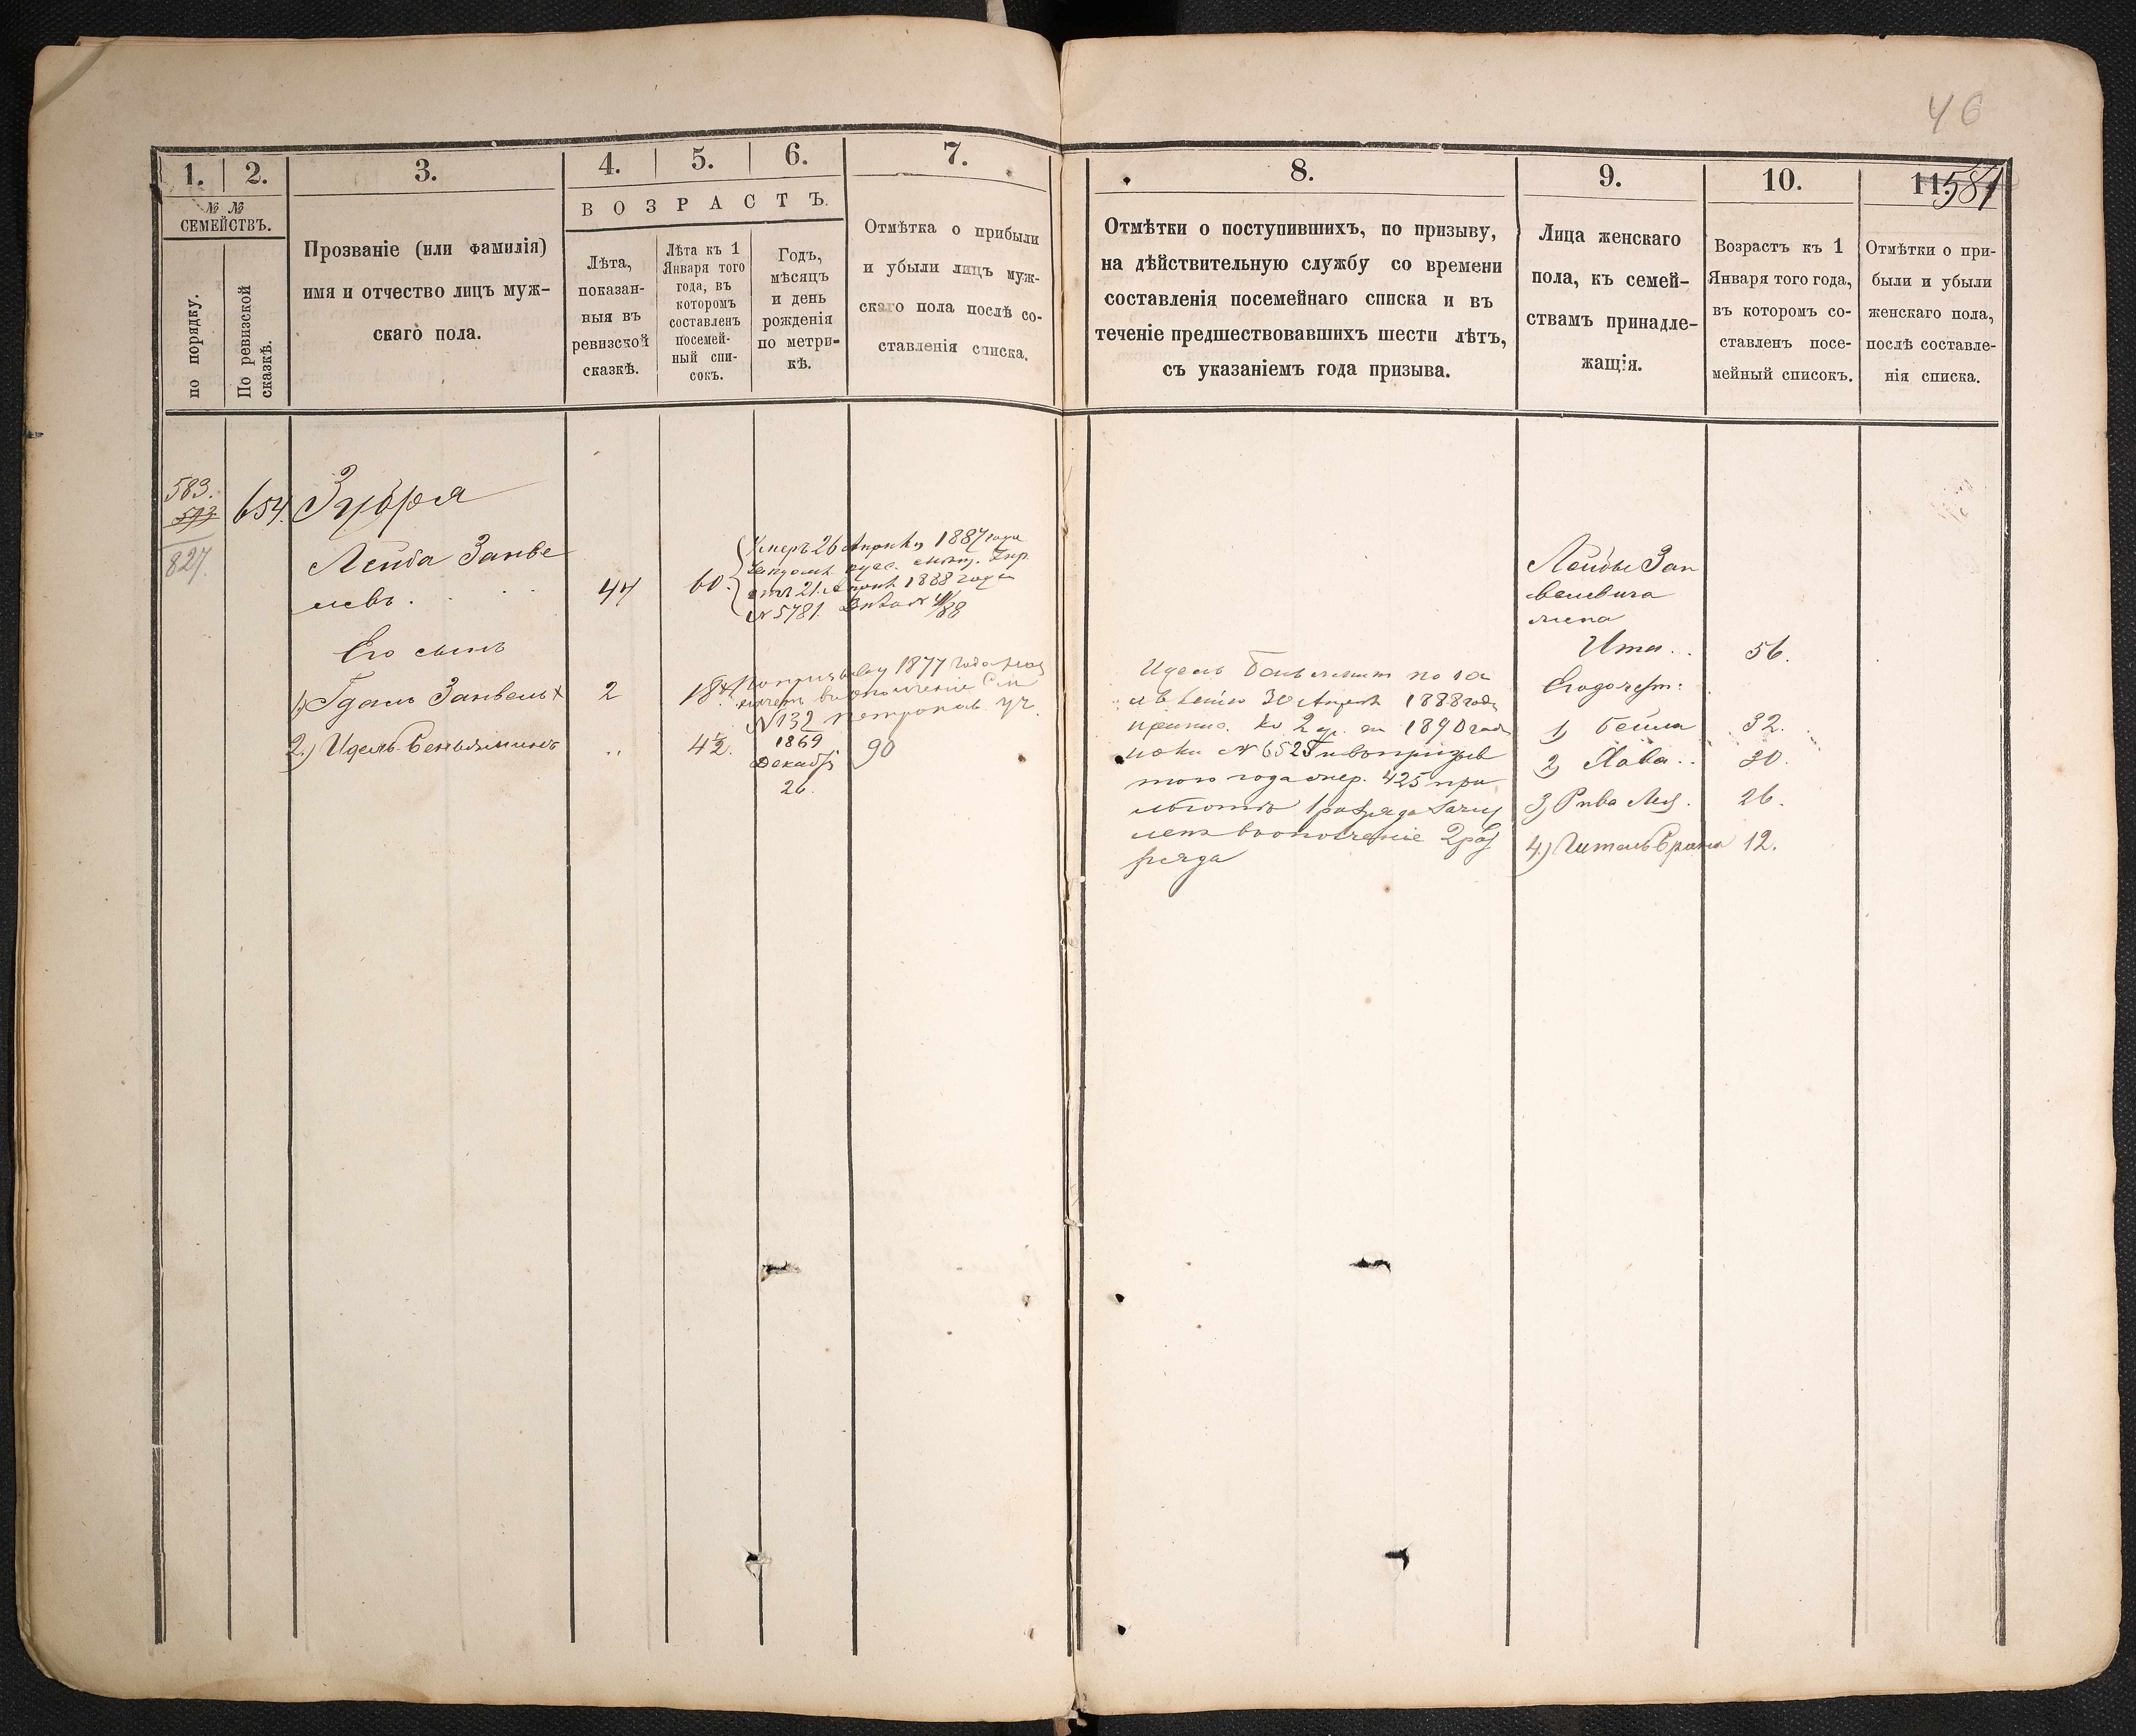 46
1.
2.
3.
4.
5.
6.
7.
8.
9.
10.
11.
581
№ №
СЕМЕЙСТВЪ.
по порядку.
По ревизской
сказкѣ.
Прозваніе (или фамилія)
имя и отчество лицъ муж-
скаго пола.
ВОЗРАСТЪ.
Лѣта,
показан-
ныя въ
ревизской
сказкѣ.
Лѣта къ 1
Января того
года, въ
которомъ
составленъ
посемей-
ный спи-
сокъ.
Годъ,
мѣсяцъ
и день
рожденія
по метри-
кѣ.
Отмѣтка о прибыли
и убыли лицъ муж-
скаго пола послѣ со-
ставленія списка.
Отмѣтки о поступившихъ, по призыву,
на дѣйствительную службу со времени
составленія посемейнаго списка и въ
теченіе предшествовавшихъ шести лѣтъ,
съ указаніемъ года призыва.
Лица женскаго
пола, къ семей-
ствамъ принадле-
жащія.
Возрастъ къ 1
Января того года,
въ которомъ со-
ставленъ посе-
мейный списокъ.
Отмѣтки о при-
были и убыли
женскаго пола,
послѣ составле-
нія списка.
583.
593.
827.
654.
Зубря
Лейба Занве
левъ
44
60
Умеръ 26 Апрѣля 1887 года
отъ 21 Апрѣля 1888 года
№ 5781
Его сынъ
1) Гдаль Занвель
2
18
По призыву 1877 года
№ 132
2) Идель Беньяминъ
4½.
1869
Декабр
26.
90
Идель
30 Апрѣля 1888 года
2 уч. на 1890 годъ
№ 6525
того года жер. 425 при
льготѣ 1 разряда зачис
ленъ въ ополченіе 2 раз
ряда
Лейбы Зан
велевича
жена
Ита
56.
Его дочери:
1) Бейла
32.
2) Хава
30.
3) Рива Лея
26.
4.) Читель
12.